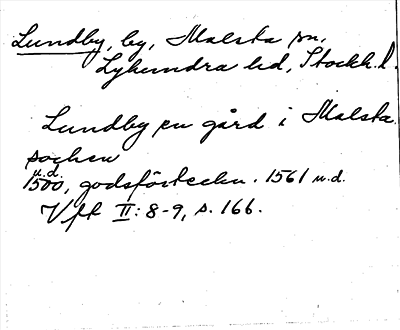 Lundby, by, Malsta sn,
Lyhundra hd, Stockh. l.
Lundby en gård i Malsta
sochen
u.d.
1500, godsförteckn. 1561 u.d.
Vft II: 8-9, s. 166.